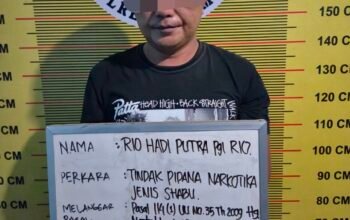 150 CM
140 CM
130 CM
120 CM
110 CM
100 CM
90 CM
CM
CM
CM
CM
CM
CM
Patta HEAD HIGH • BACK STRAIGHT
NAMA : RIO HADI PUTRA Pgl RIO.
PERKARA : TINDAK PIDANA NARKOTIKA
JENIS SHABU.
MELANGGAR : Pasal 114 (1) UU NO. 35 Th 2009 ttg